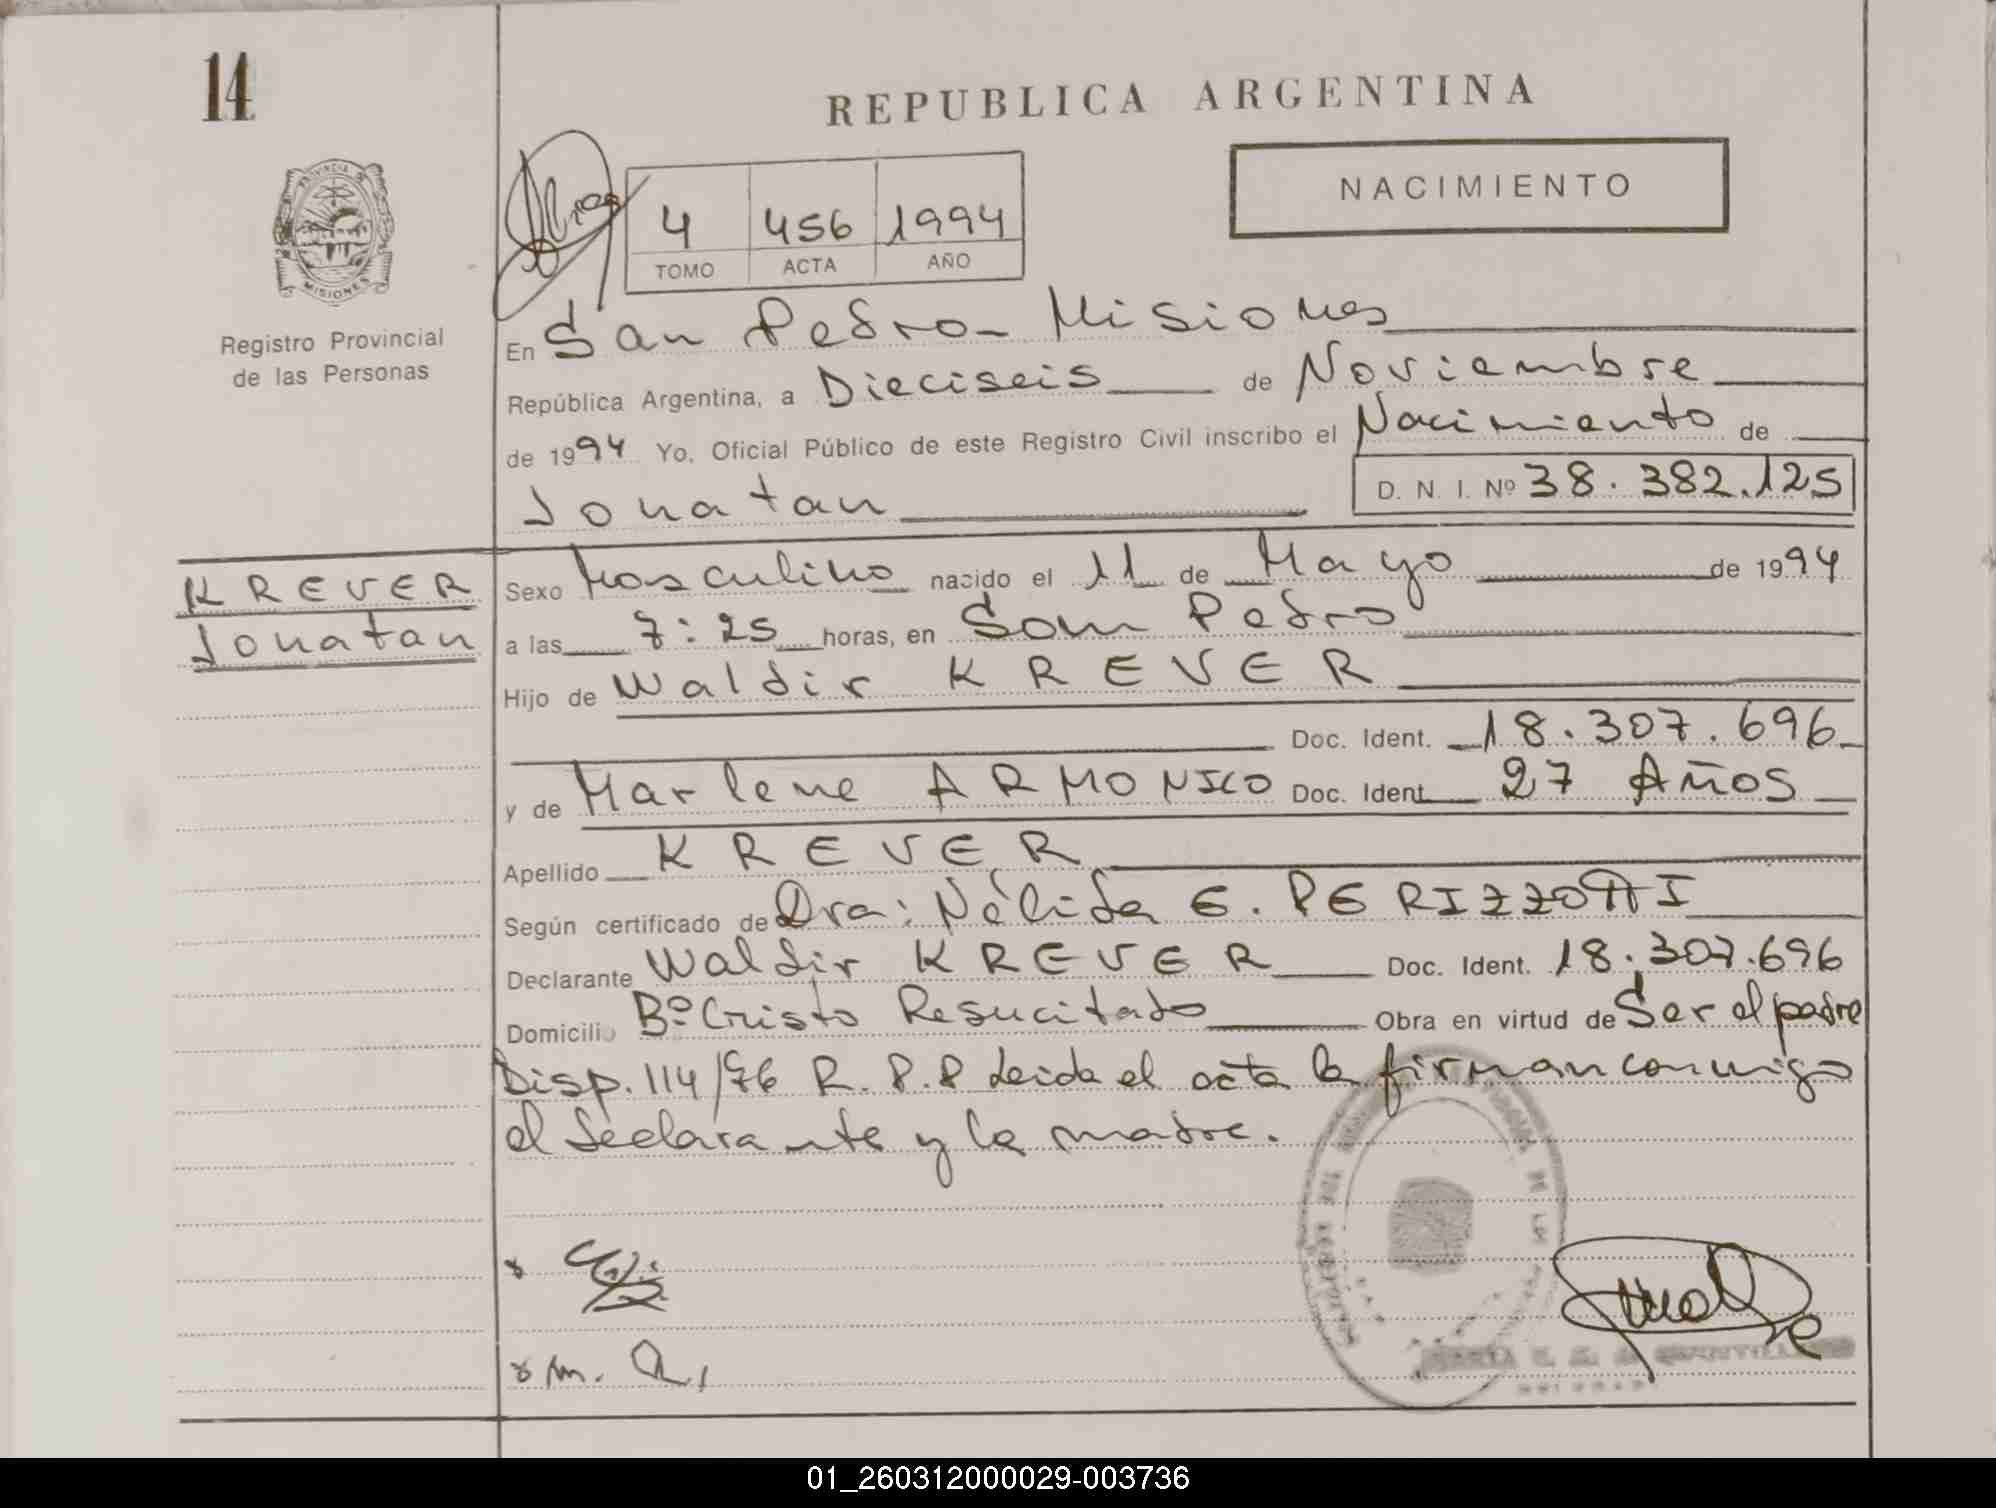 14
REPUBLICA ARGENTINA
NACIMIENTO
PROVINCIA DE
MISIONES
4 456 1994
TOMO ACTA AÑO
Registro Provincial
de las Personas
En San Pedro - Misiones
República Argentina, a Dieciseis de Noviembre
de 1994 Yo, Oficial Público de este Registro Civil inscribo el Nacimiento de
Jonatan D. N. I. Nº 38.382.125
KREVER
Jonatan
Sexo Masculino nacido el 11 de Mayo de 1994
a las 7:25 horas, en San Pedro
Hijo de Waldir KREVER
Doc. Ident. 18.307.696
y de Marlene ARMONICO Doc. Ident. 27 Años
Apellido KREVER
Según certificado de Dra: Nélida E. PERIZZOTTI
Declarante Waldir KREVER Doc. Ident. 18.307.696
Domicilio Bº Cristo Resucitado Obra en virtud de Ser el padre
Disp. 114/76 R. P. P Leida el acta la firman conmigo
el declarante y la madre.
01_260312000029-003736